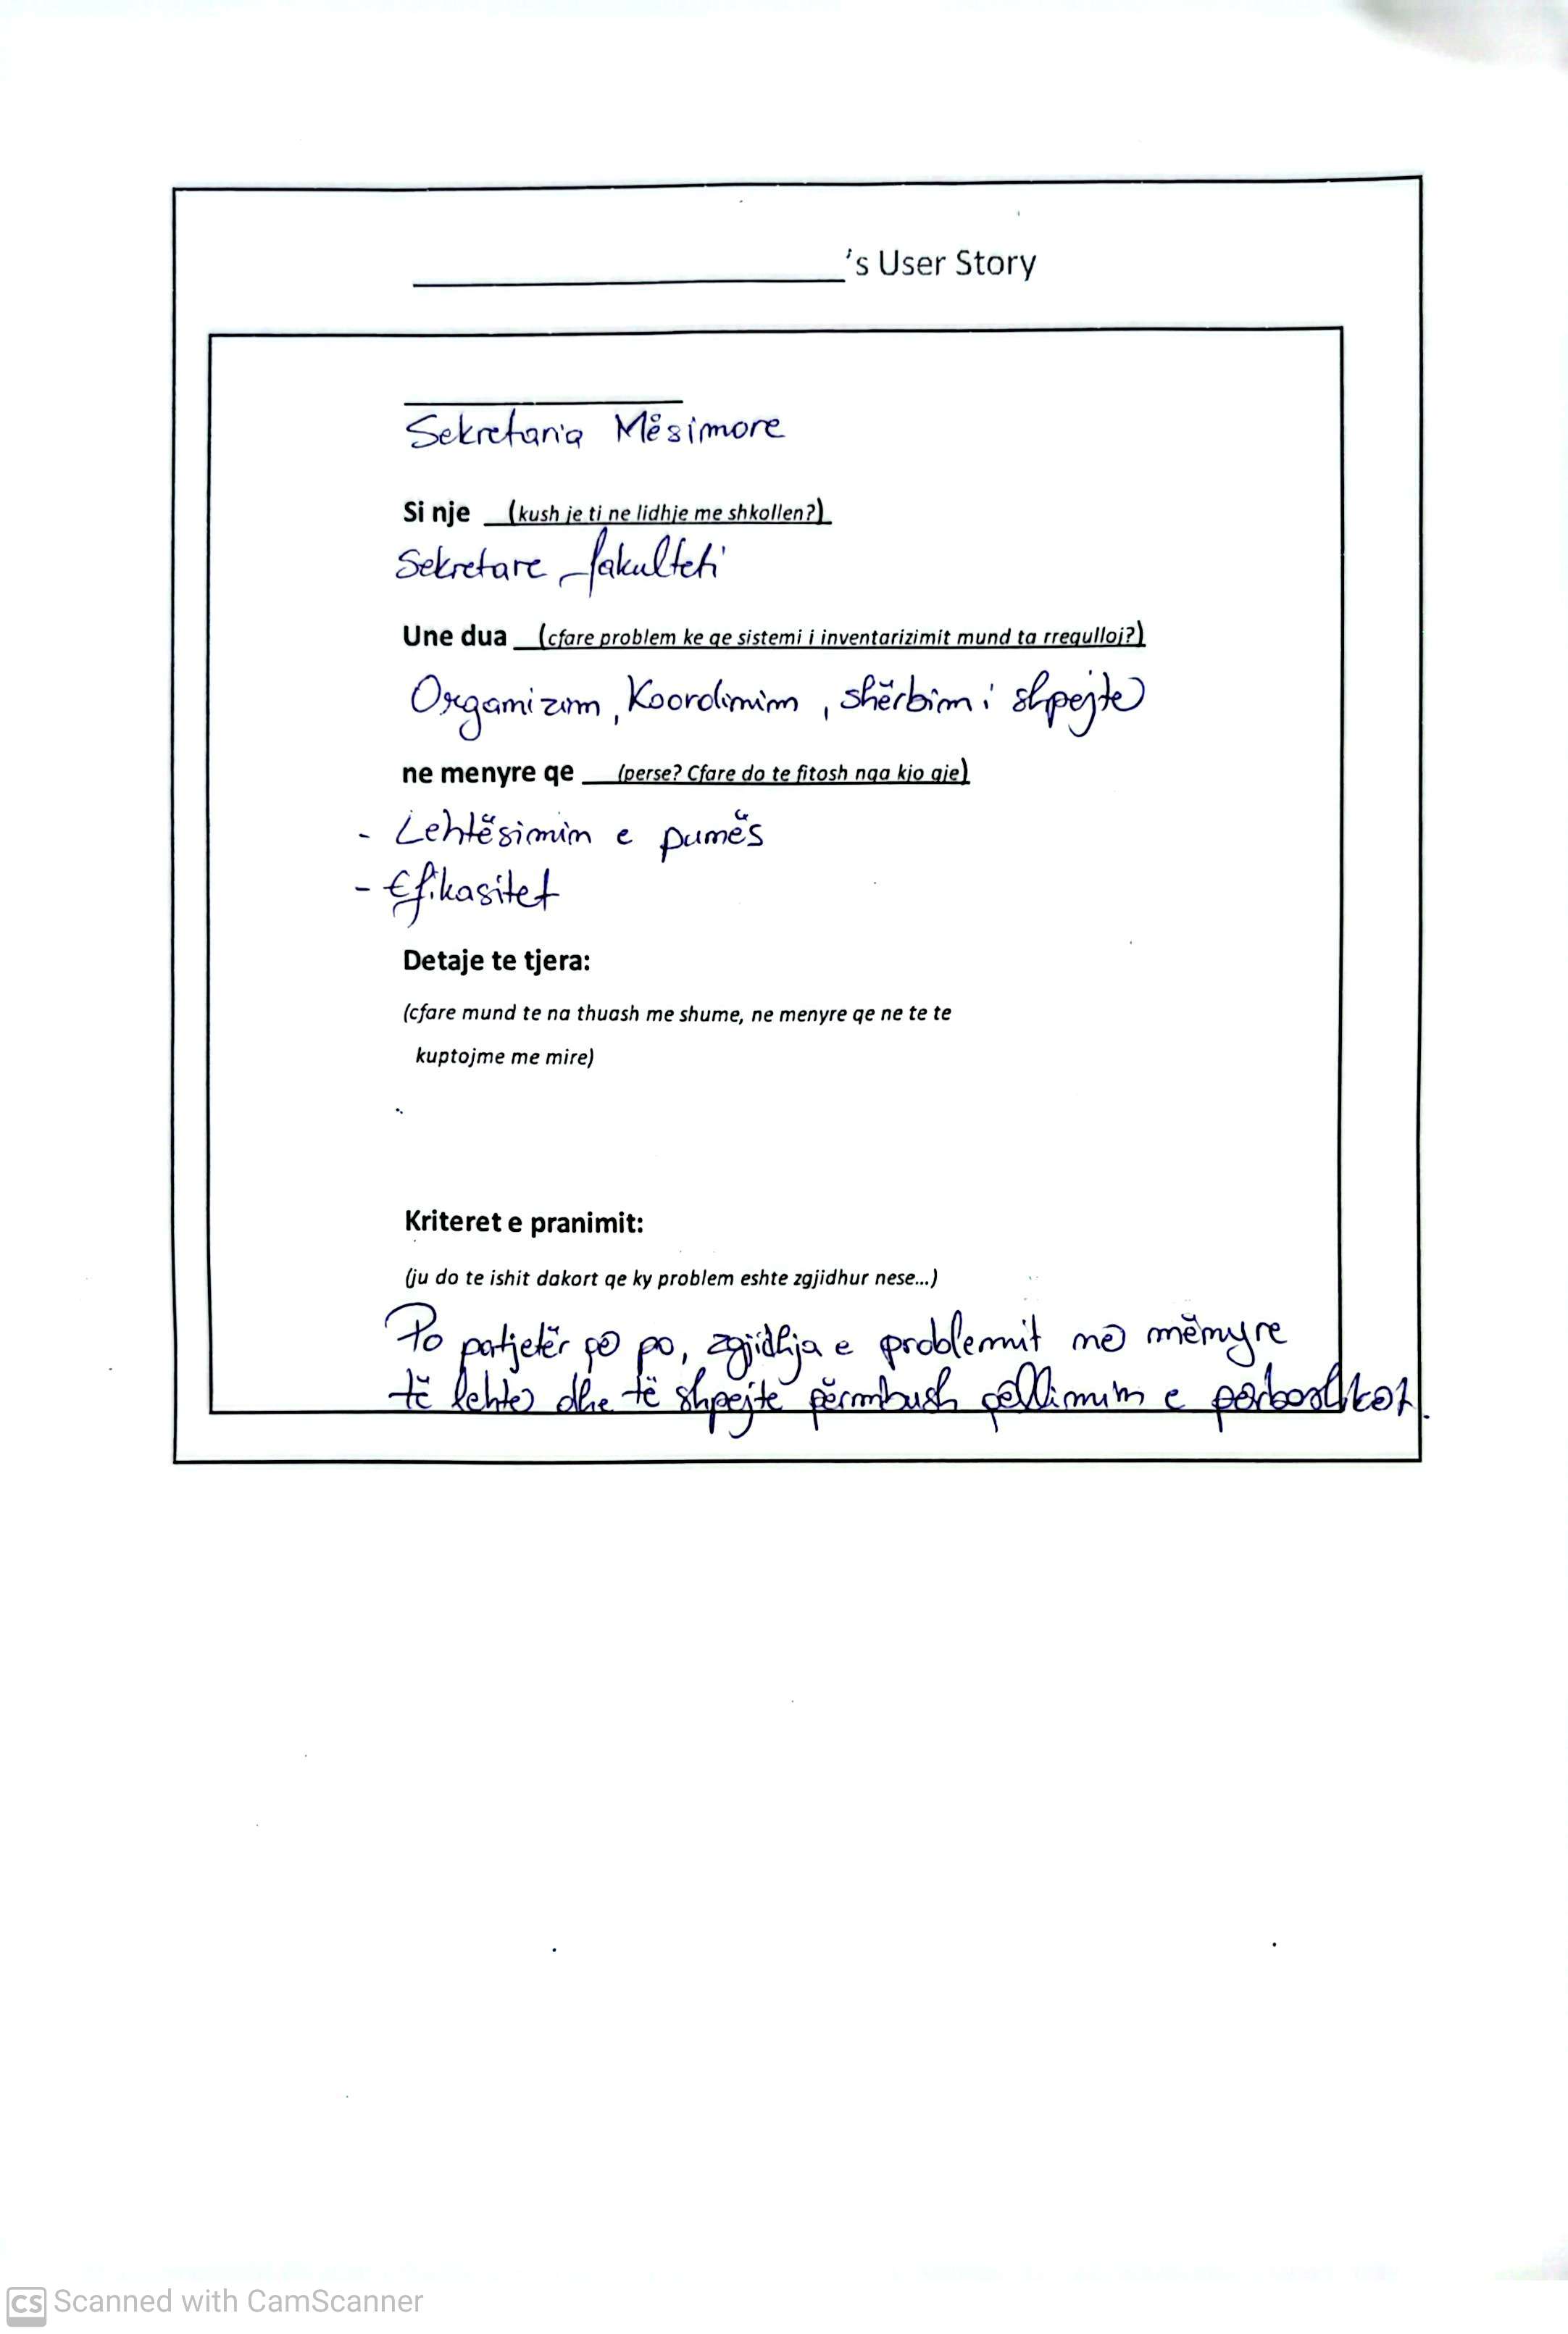 's User Story
Sekretaria Mësimore
Si nje (kush je ti ne lidhje me shkollen?)
Sekretare fakulteti
Une dua (cfare problem ke qe sistemi i inventarizimit mund ta rregulloj?)
Organizim, Koordinim, shërbim i shpejte
ne menyre qe (perse? Cfare do te fitosh nga kjo gje)
- Lehtësimin e punës
- Efikasitet
Detaje te tjera:
(cfare mund te na thuash me shume, ne menyre qe ne te te
kuptojme me mire)
Kriteret e pranimit:
(ju do te ishit dakort qe ky problem eshte zgjidhur nese...)
Po patjetër që po, zgjidhja e problemit në mënyre
të lehte dhe të shpejte përmbush qëllimin e përbashkët.
CS Scanned with CamScanner